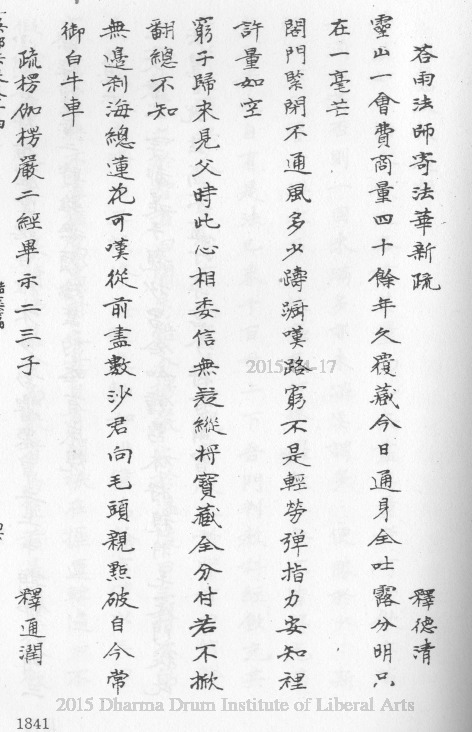 荅雨法師寄法華新疏　釋德清
靈山一會費商量四十餘年久覆藏今日通身全吐露分明只
在一毫芒
閤門緊閉不通風多少躊蹰嘆路窮不是輕勞彈指力安知裡
許量如空
窮子歸來見父時此心相委信無疑縱將寶藏全分付若不掀
翻總不知
無邊剎海總蓮花可嘆從前盡數沙君向毛頭親點破自今常
御白牛車
疏楞伽楞嚴二經畢示二三子　釋通潤
2015 Dharma Drum Institute of Liberal Arts
1841